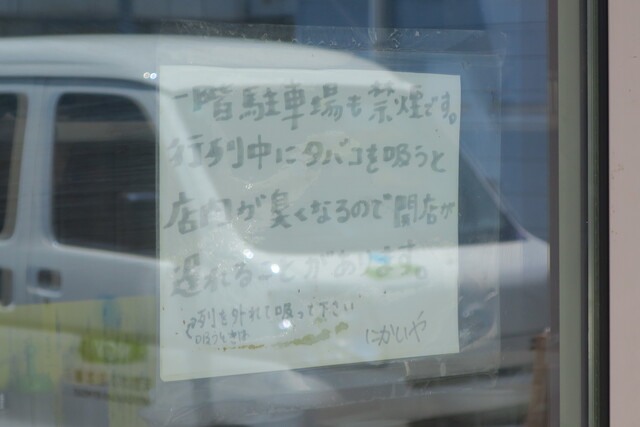 一階駐車場も禁煙です。
行列中にタバコを吸うと
店内が臭くなるので開店が
遅れることがあります。
列を外れて吸って下さい
にかいや